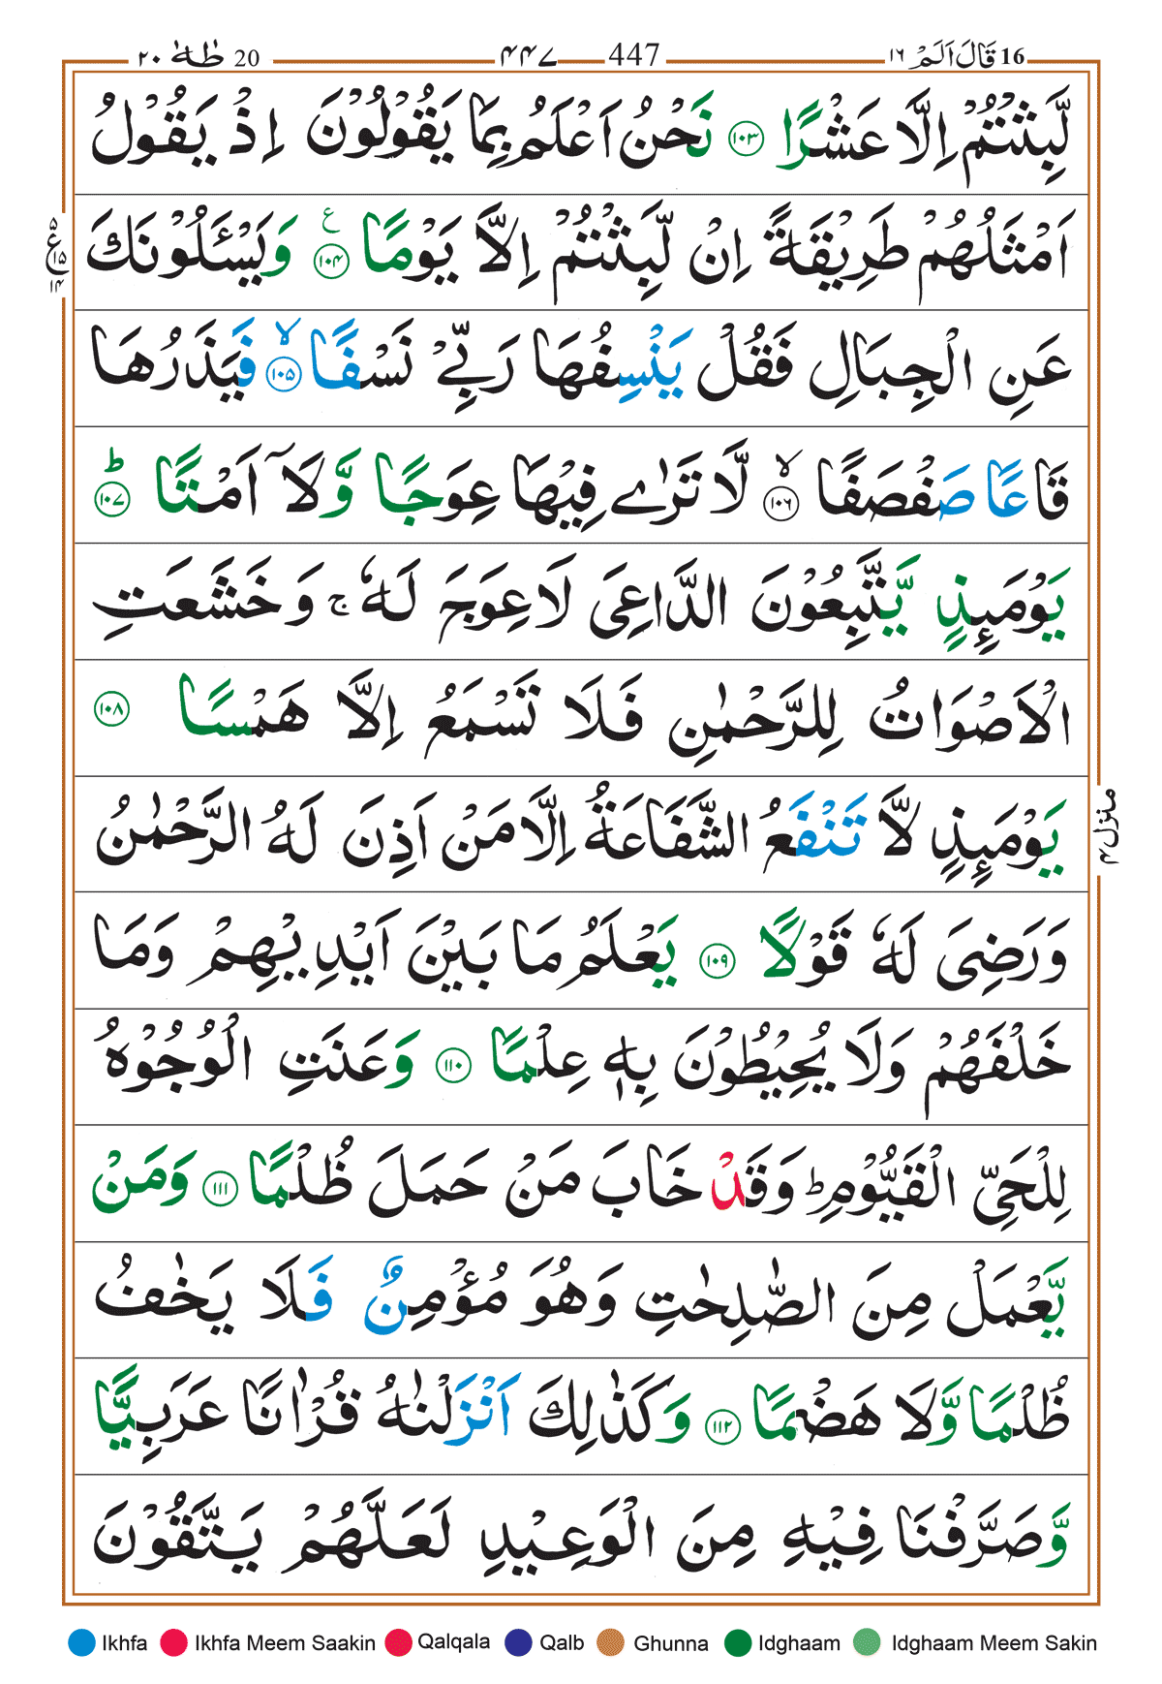 16 قَالَ اَلَمْ ١٦ 447 ۴۴۷ 20 طٰهٰ ٢٠
لَّبِثْتُمْ اِلَّا عَشْرًا ۝١٠٣ نَحْنُ اَعْلَمُ بِمَا يَقُوْلُوْنَ اِذْ يَقُوْلُ
اَمْثَلُهُمْ طَرِيْقَةً اِنْ لَّبِثْتُمْ اِلَّا يَوْمًا ۝١٠۴ ع وَيَسْـَٔلُوْنَكَ
۵ ع ١۵ ١۴
عَنِ الْجِبَالِ فَقُلْ يَنْسِفُهَا رَبِّيْ نَسْفًا ۝١٠۵ۙ فَيَذَرُهَا
قَاعًا صَفْصَفًا ۝١٠٦ۙ لَّا تَرٰى فِيْهَا عِوَجًا وَّلَآ اَمْتًا ۝١٠٧ؕ
يَوْمَىِٕذٍ يَّتَّبِعُوْنَ الدَّاعِيَ لَاعِوَجَ لَهٗ ۚ وَخَشَعَتِ
الْاَصْوَاتُ لِلرَّحْمٰنِ فَلَا تَسْمَعُ اِلَّا هَمْسًا ۝١٠٨
يَوْمَىِٕذٍ لَّا تَنْفَعُ الشَّفَاعَةُ اِلَّا مَنْ اَذِنَ لَهُ الرَّحْمٰنُ
منزل ۴
وَرَضِيَ لَهٗ قَوْلًا ۝١٠٩ يَعْلَمُ مَا بَيْنَ اَيْدِيْهِمْ وَمَا
خَلْفَهُمْ وَلَا يُحِيْطُوْنَ بِهٖ عِلْمًا ۝١١٠ وَعَنَتِ الْوُجُوْهُ
لِلْحَيِّ الْقَيُّوْمِ ؕ وَقَدْ خَابَ مَنْ حَمَلَ ظُلْمًا ۝١١١ وَمَنْ
يَّعْمَلْ مِنَ الصّٰلِحٰتِ وَهُوَ مُؤْمِنٌ فَلَا يَخٰفُ
ظُلْمًا وَّلَا هَضْمًا ۝١١٢ وَكَذٰلِكَ اَنْزَلْنٰهُ قُرْاٰنًا عَرَبِيًّا
وَّصَرَّفْنَا فِيْهِ مِنَ الْوَعِيْدِ لَعَلَّهُمْ يَتَّقُوْنَ
Ikhfa Ikhfa Meem Saakin Qalqala Qalb Ghunna Idghaam Idghaam Meem Sakin